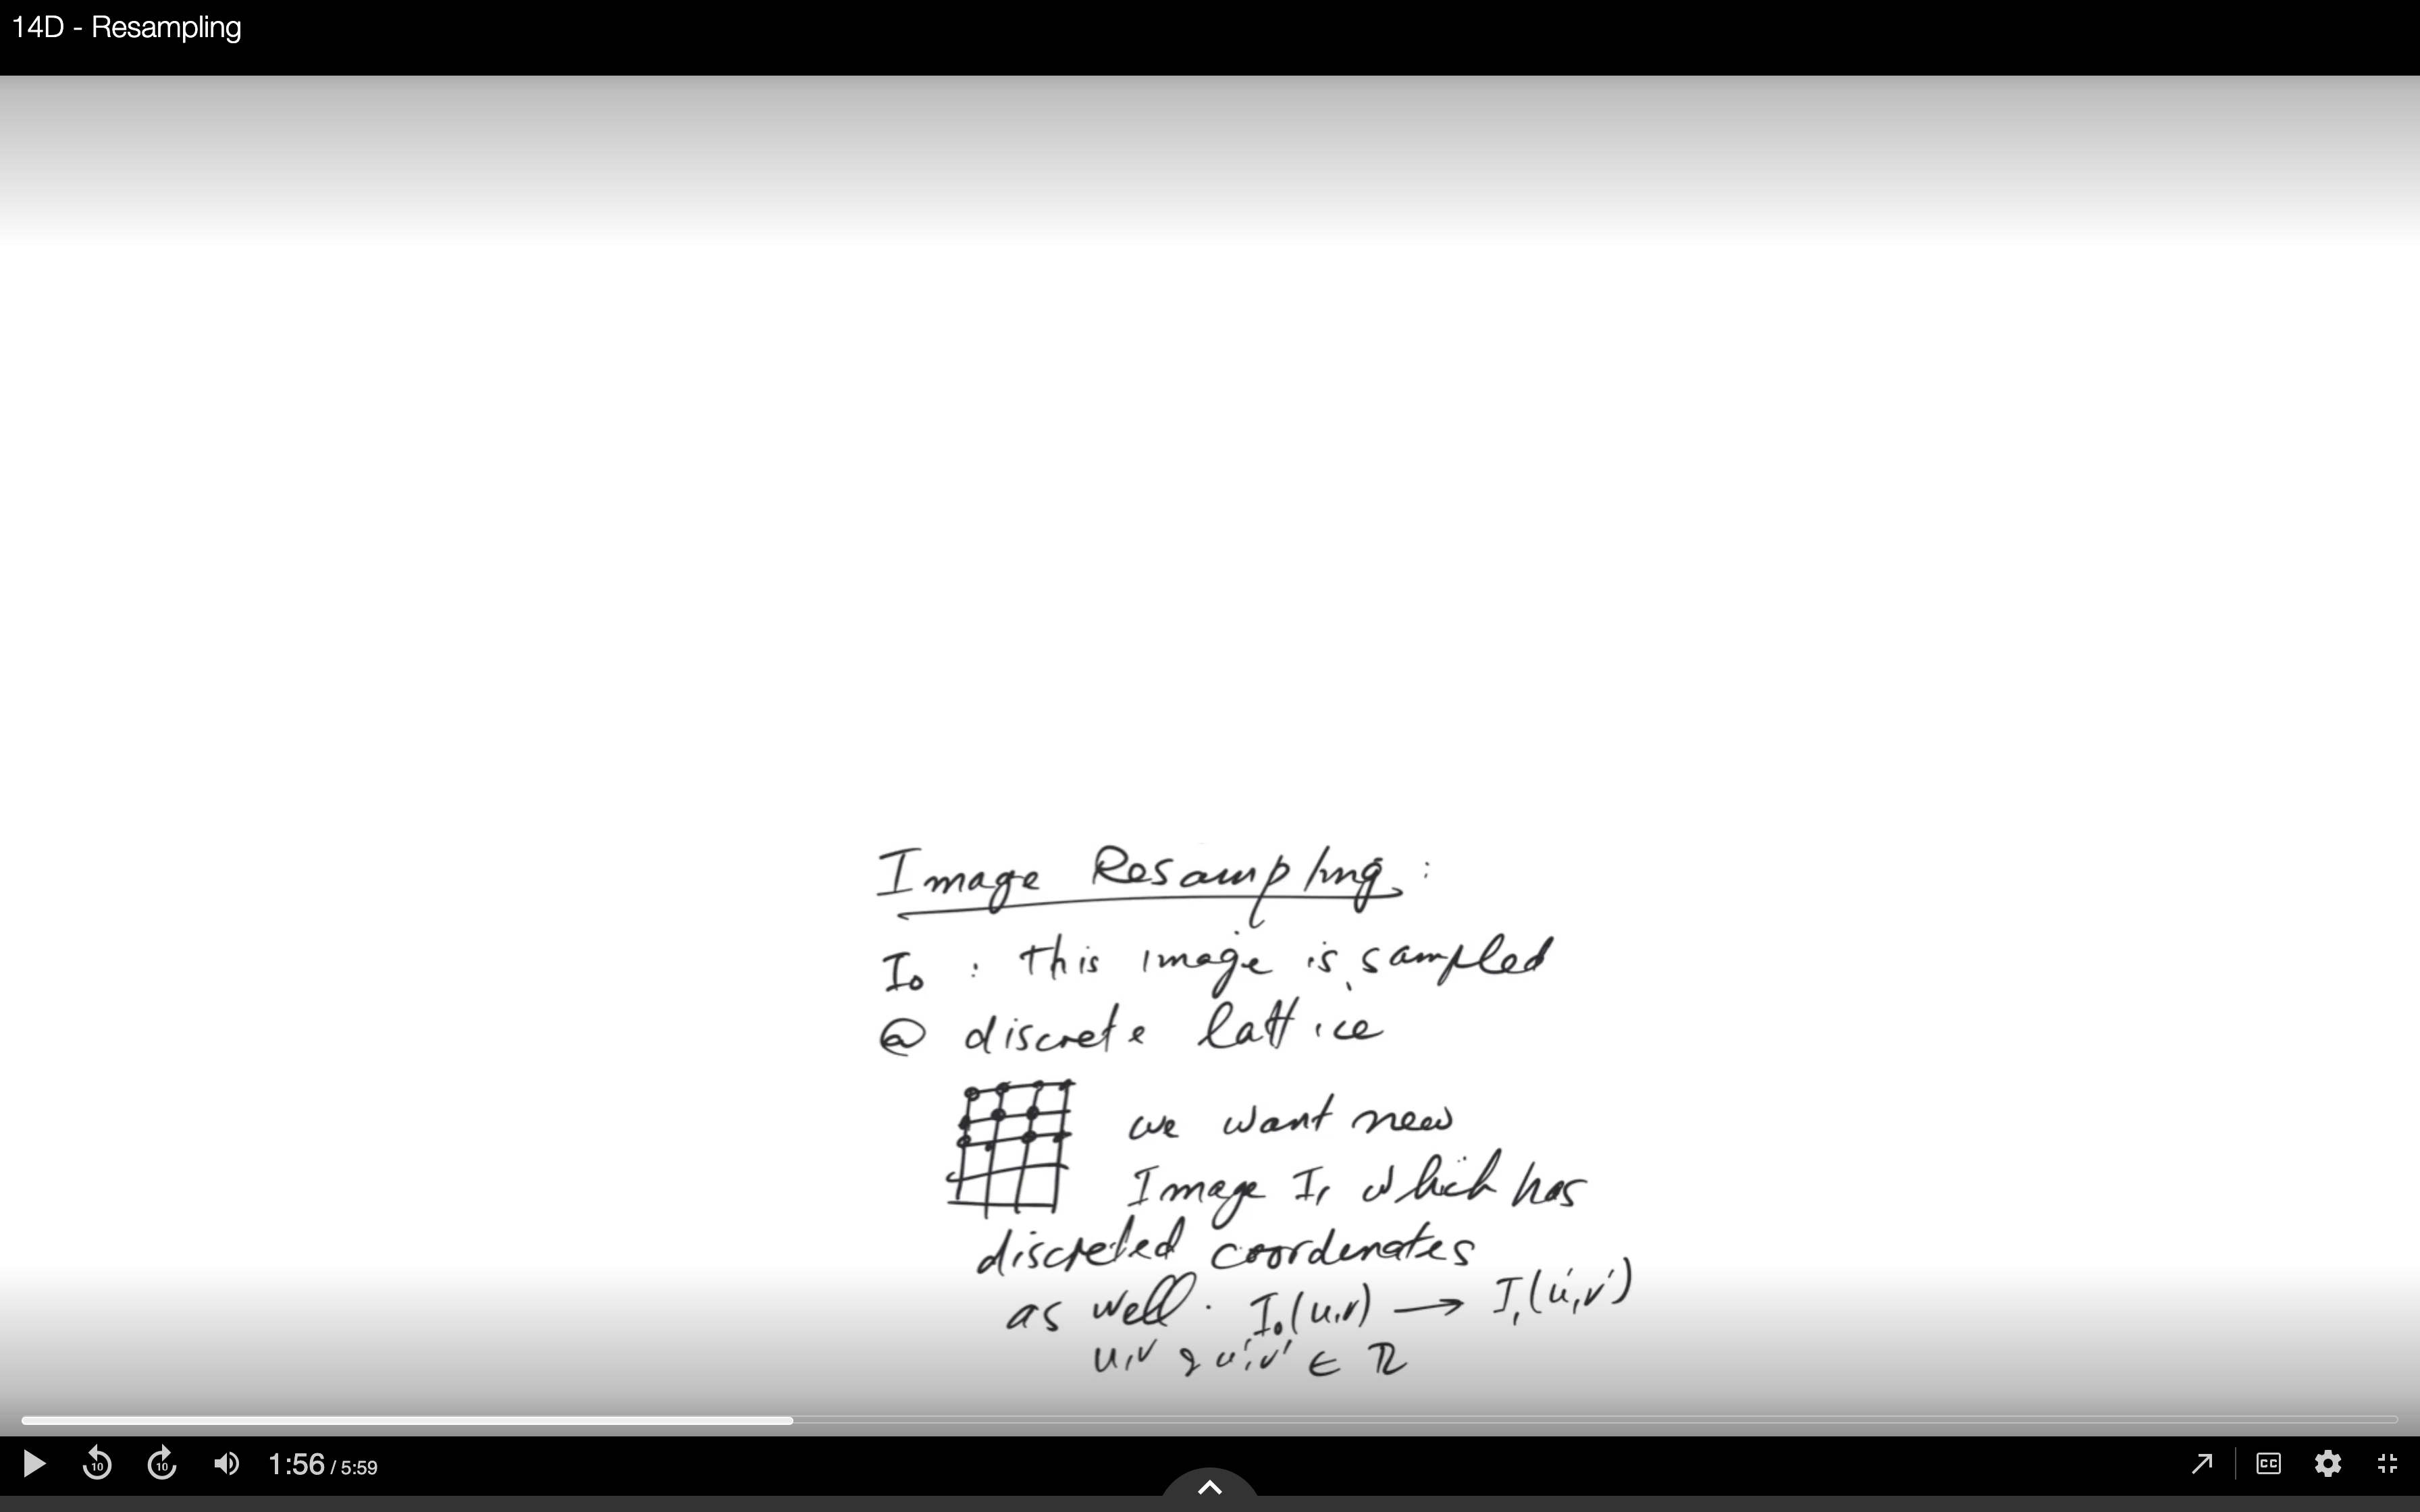 14D - Resampling
Image Resampling :
I₀ : this image is sampled
@ discrete lattice
we want new
Image I₁ which has
discreted coordenates
as well. I₀(u,v) → I₁(u',v')
u,v & u',v' ∈ R
10 10 1:56 / 5:59 CC